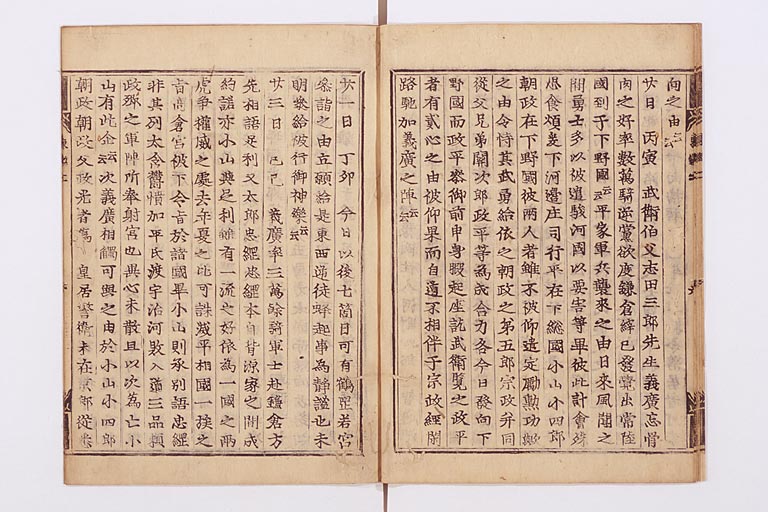 向之由云云
廿日 丙寅 武衛伯父志田三郎先生義廣忘骨
肉之好率數萬騎逆黨欲度鎌倉縡已發覺出常陸
國到于下野國云云平家軍兵襲來之由日來風聞之
間勇士多以被遣駿河國以要害等畢彼此計會殊
思食煩爰下河邊庄司行平在下総國小山小四郎
朝政在下野國彼兩人者雖不被仰遣定勵勲功歟
之由令恃其武勇給依之朝政之弟五郎宗政并同
從父兄弟關次郎政平等為成合力各今日發向下
野國而政平參御前申身暇起座訖武衛覧之政平
者有貳心之由被仰果而自道不相伴于宗政經閑
路馳加義廣之陣云云
廿一日 丁夘 今日以後七箇日可有鶴罡若宮
參詣之由立願給是東西逆徒蜂起事為靜謐也未
明參給被行御神樂云云
廿三日 己巳 義廣率三萬餘騎軍士赴鎌倉方
先相語足利又太郎忠經忠經本自背源家之間成
約諾亦小山與足利雖有一流之好依為一國之兩
虎爭權威之處去年夏之比可誅滅平相國一族之
旨高倉宮被下令旨於諸國畢小山則承別語忠經
非其列太含欝憤加平氏渡宇治河敗入道三品頼
政卿之軍陣所奉射宮也異心未散且以次為亡小
山有此企云云次義廣相觸可與之由於小山小四郎
朝政朝政父政光者為 皇居警衛未在京郎從悉